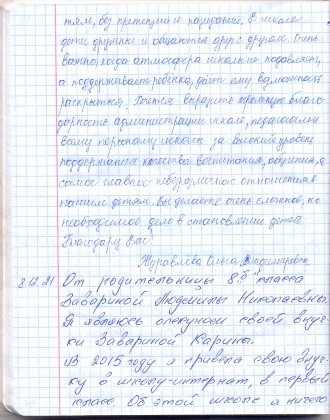 тям, без претензий и разделений. В школе
дети дружные и общаются друг с другом. Очень
важно, когда атмосфера школы не подавляет,
а поддерживает ребёнка, даёт ему возможность
раскрыться. Хочется выразить огромную благо-
дарность администрации школы, педагогам и
всему персоналу школы за высокий уровень
поддержания качества воспитания, обучения, а
самое главное - небезразличного отношения к
нашим детям. Вы делаете очень сложное, но
необходимое дело в становлении детей.
Благодарю Вас!
Журавлева Ольга Владимировна
8.12.21 От родительницы 8 "Б" класса
Завариной Людмилы Николаевны.
Я являюсь опекуном своей внуч-
ки Завариной Карины.
В 2015 году я привела свою внуч-
ку в школу-интернат, в первый
класс. Об этой школе я ничего